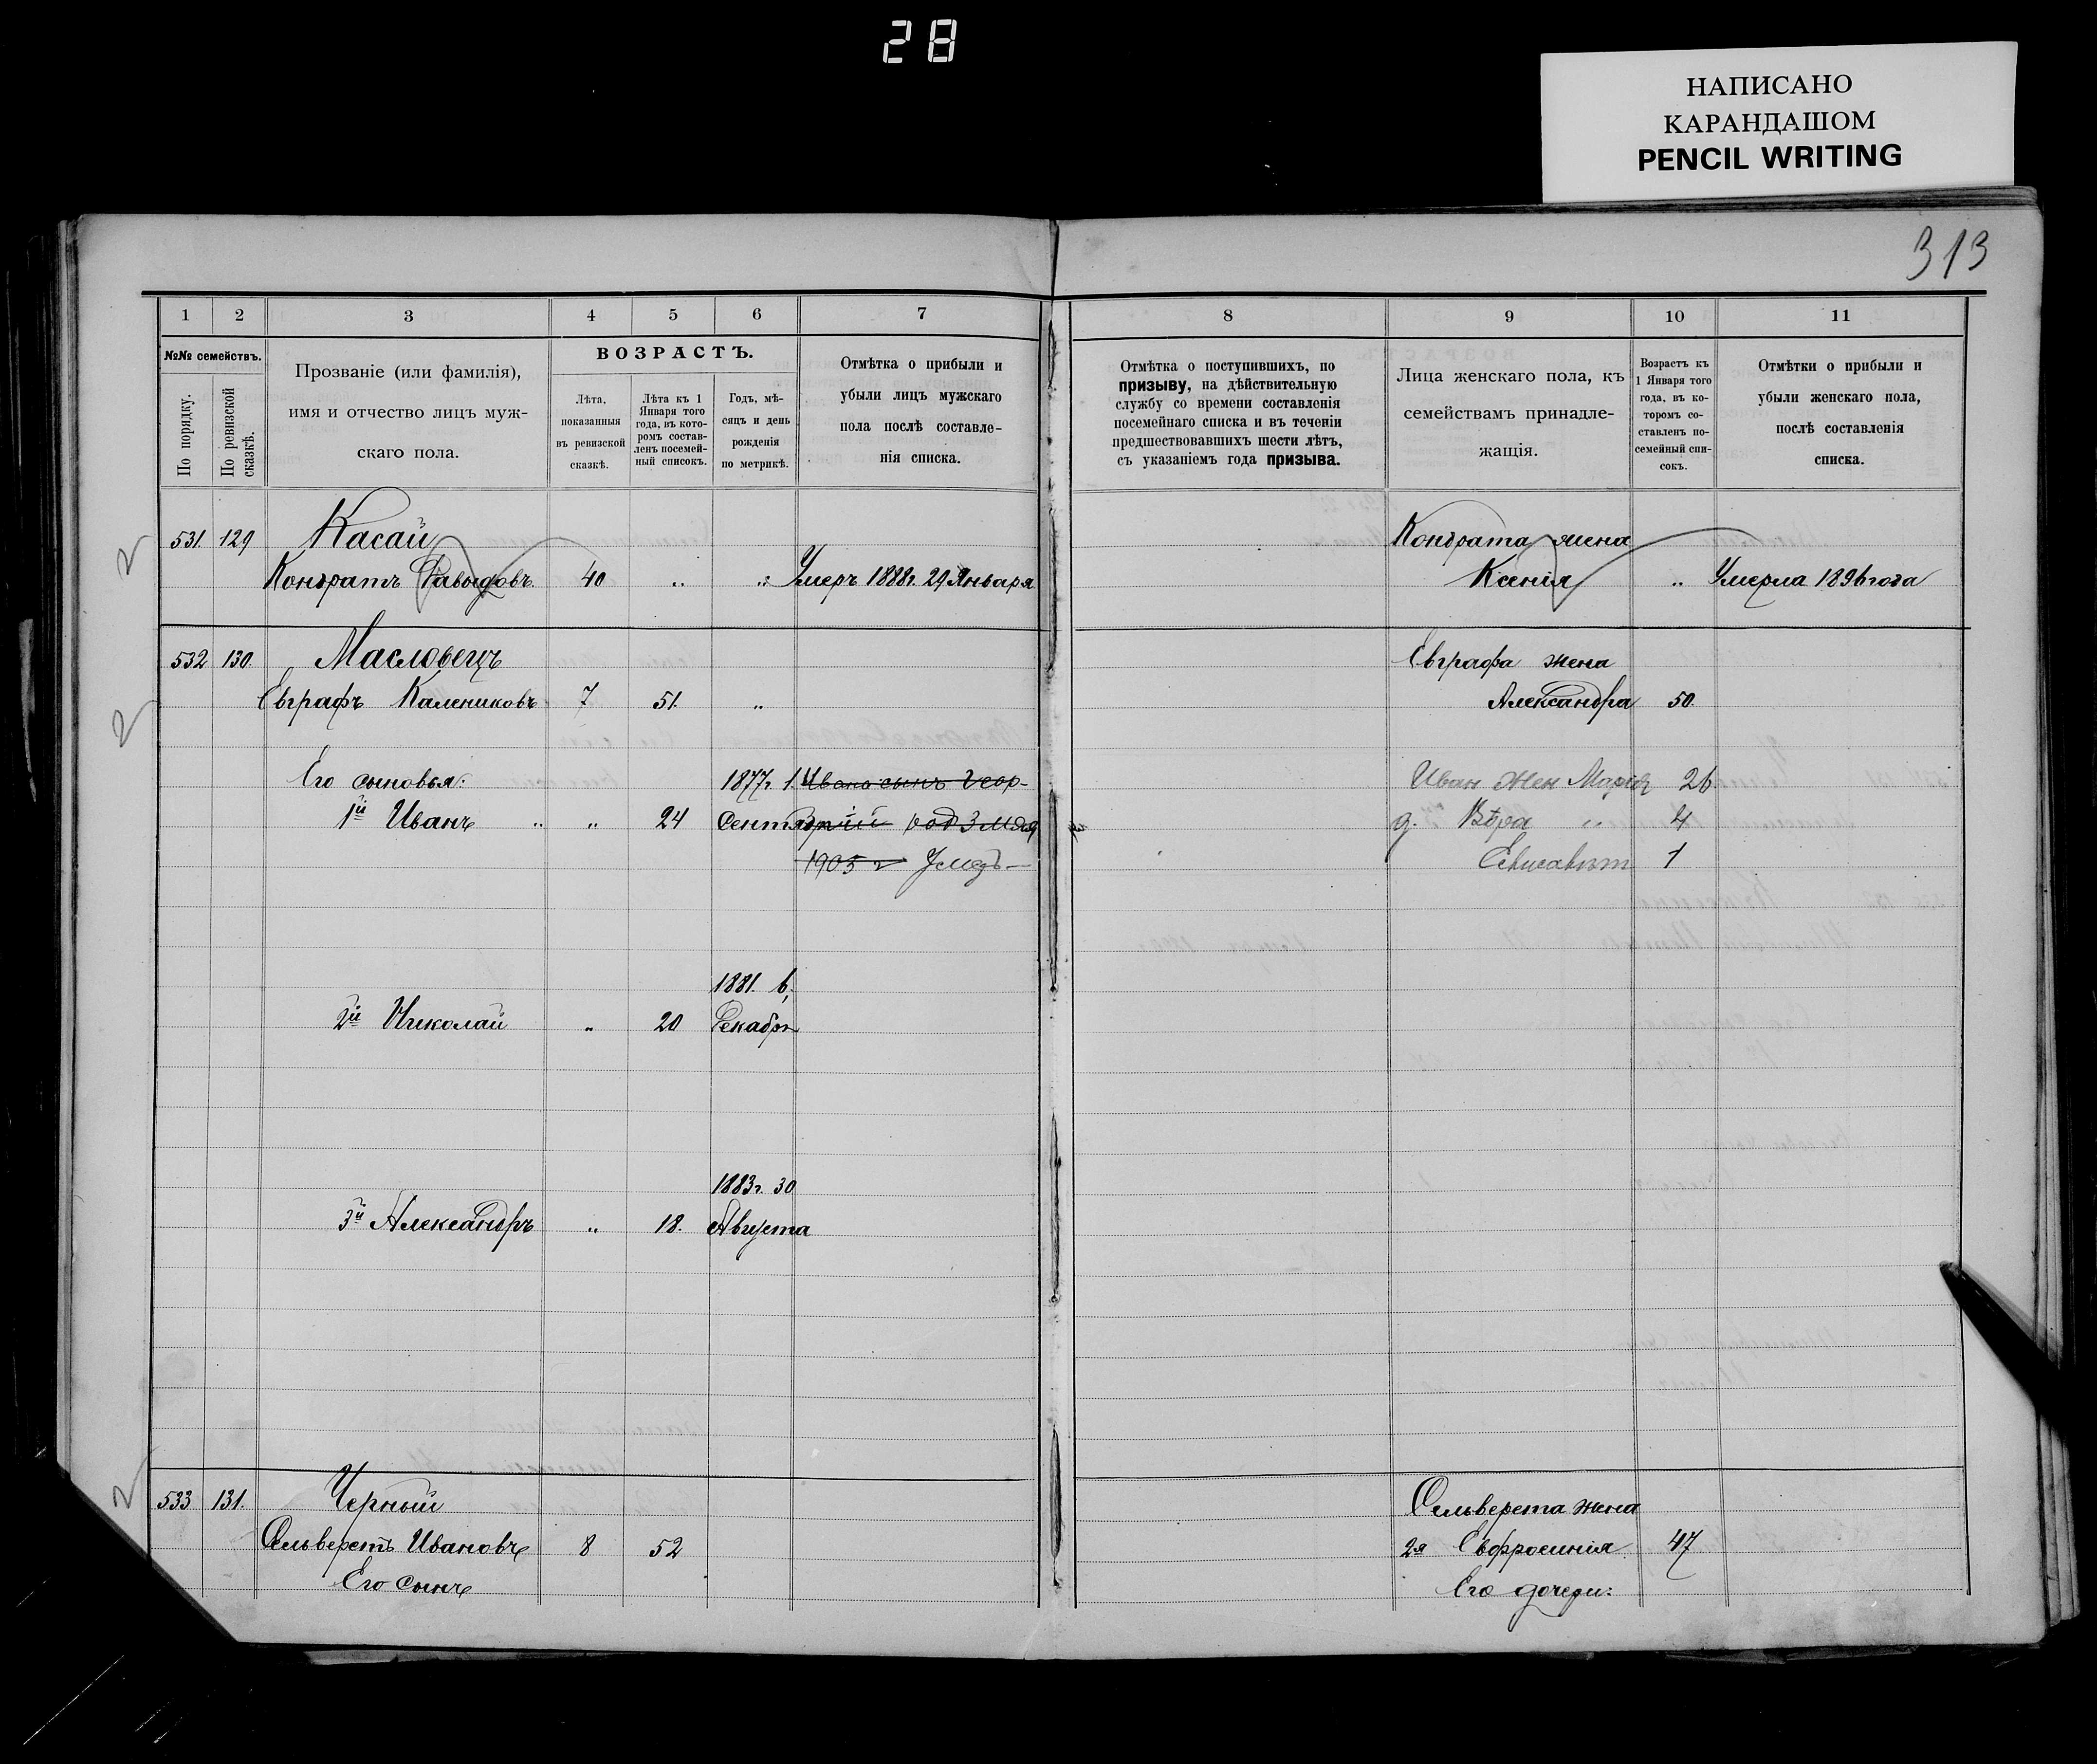 28
НАПИСАНО
КАРАНДАШОМ
PENCIL WRITING
313
1 2 3 4 5 6 7 8 9 10 11
№№ семействъ.
По порядку.
По ревизской сказкѣ.
Прозваніе (или фамилія),
имя и отчество лицъ муж-
скаго пола.
ВОЗРАСТЪ.
Лѣта,
показанныя
въ ревизской
сказкѣ.
Лѣта къ 1
Января того
года, въ кото-
ромъ состав-
ленъ посемей-
ный списокъ.
Годъ, мѣ-
сяцъ и день
рожденія
по метрикѣ.
Отмѣтка о прибыли и
убыли лицъ мужскаго
пола послѣ составле-
нія списка.
Отмѣтка о поступившихъ, по
призыву, на дѣйствительную
службу со времени составленія
посемейнаго списка и въ теченіи
предшествовавшихъ шести лѣтъ,
съ указаніемъ года призыва.
Лица женскаго пола, къ
семействамъ принадле-
жащія.
Возрастъ къ
1 Января того
года, въ ко-
торомъ со-
ставленъ по-
семейный спи-
сокъ.
Отмѣтки о прибыли и
убыли женскаго пола,
послѣ составленія
списка.
2 531. 129 Касай Кондрата жена
Кондратъ Давыдовъ. 40 „ „ Умеръ 1888г. 29 Января Ксенія „ Умерла 1896 года
532 130. Масловецъ Евграфа жена
2 Евграфъ Калениковъ 7 51. „ Александра 50.
Его сыновья: 1877г. 1. Ивана сынъ Геор- Иван жен Марія 26
1й Иванъ „ „ 24 Сентября гій род 3 мая д. Вѣра „ 4
1905 г Умеръ Елисавет 1
1881. 6,
2й Николай „ 20 Декабря
1883г. 30
3й Александръ „ 18. Августа
2 533 131. Черный Сельверста жена
Сельверстъ Ивановъ 8 52 2я Евфросинія 47
Его сынъ Его дочери: